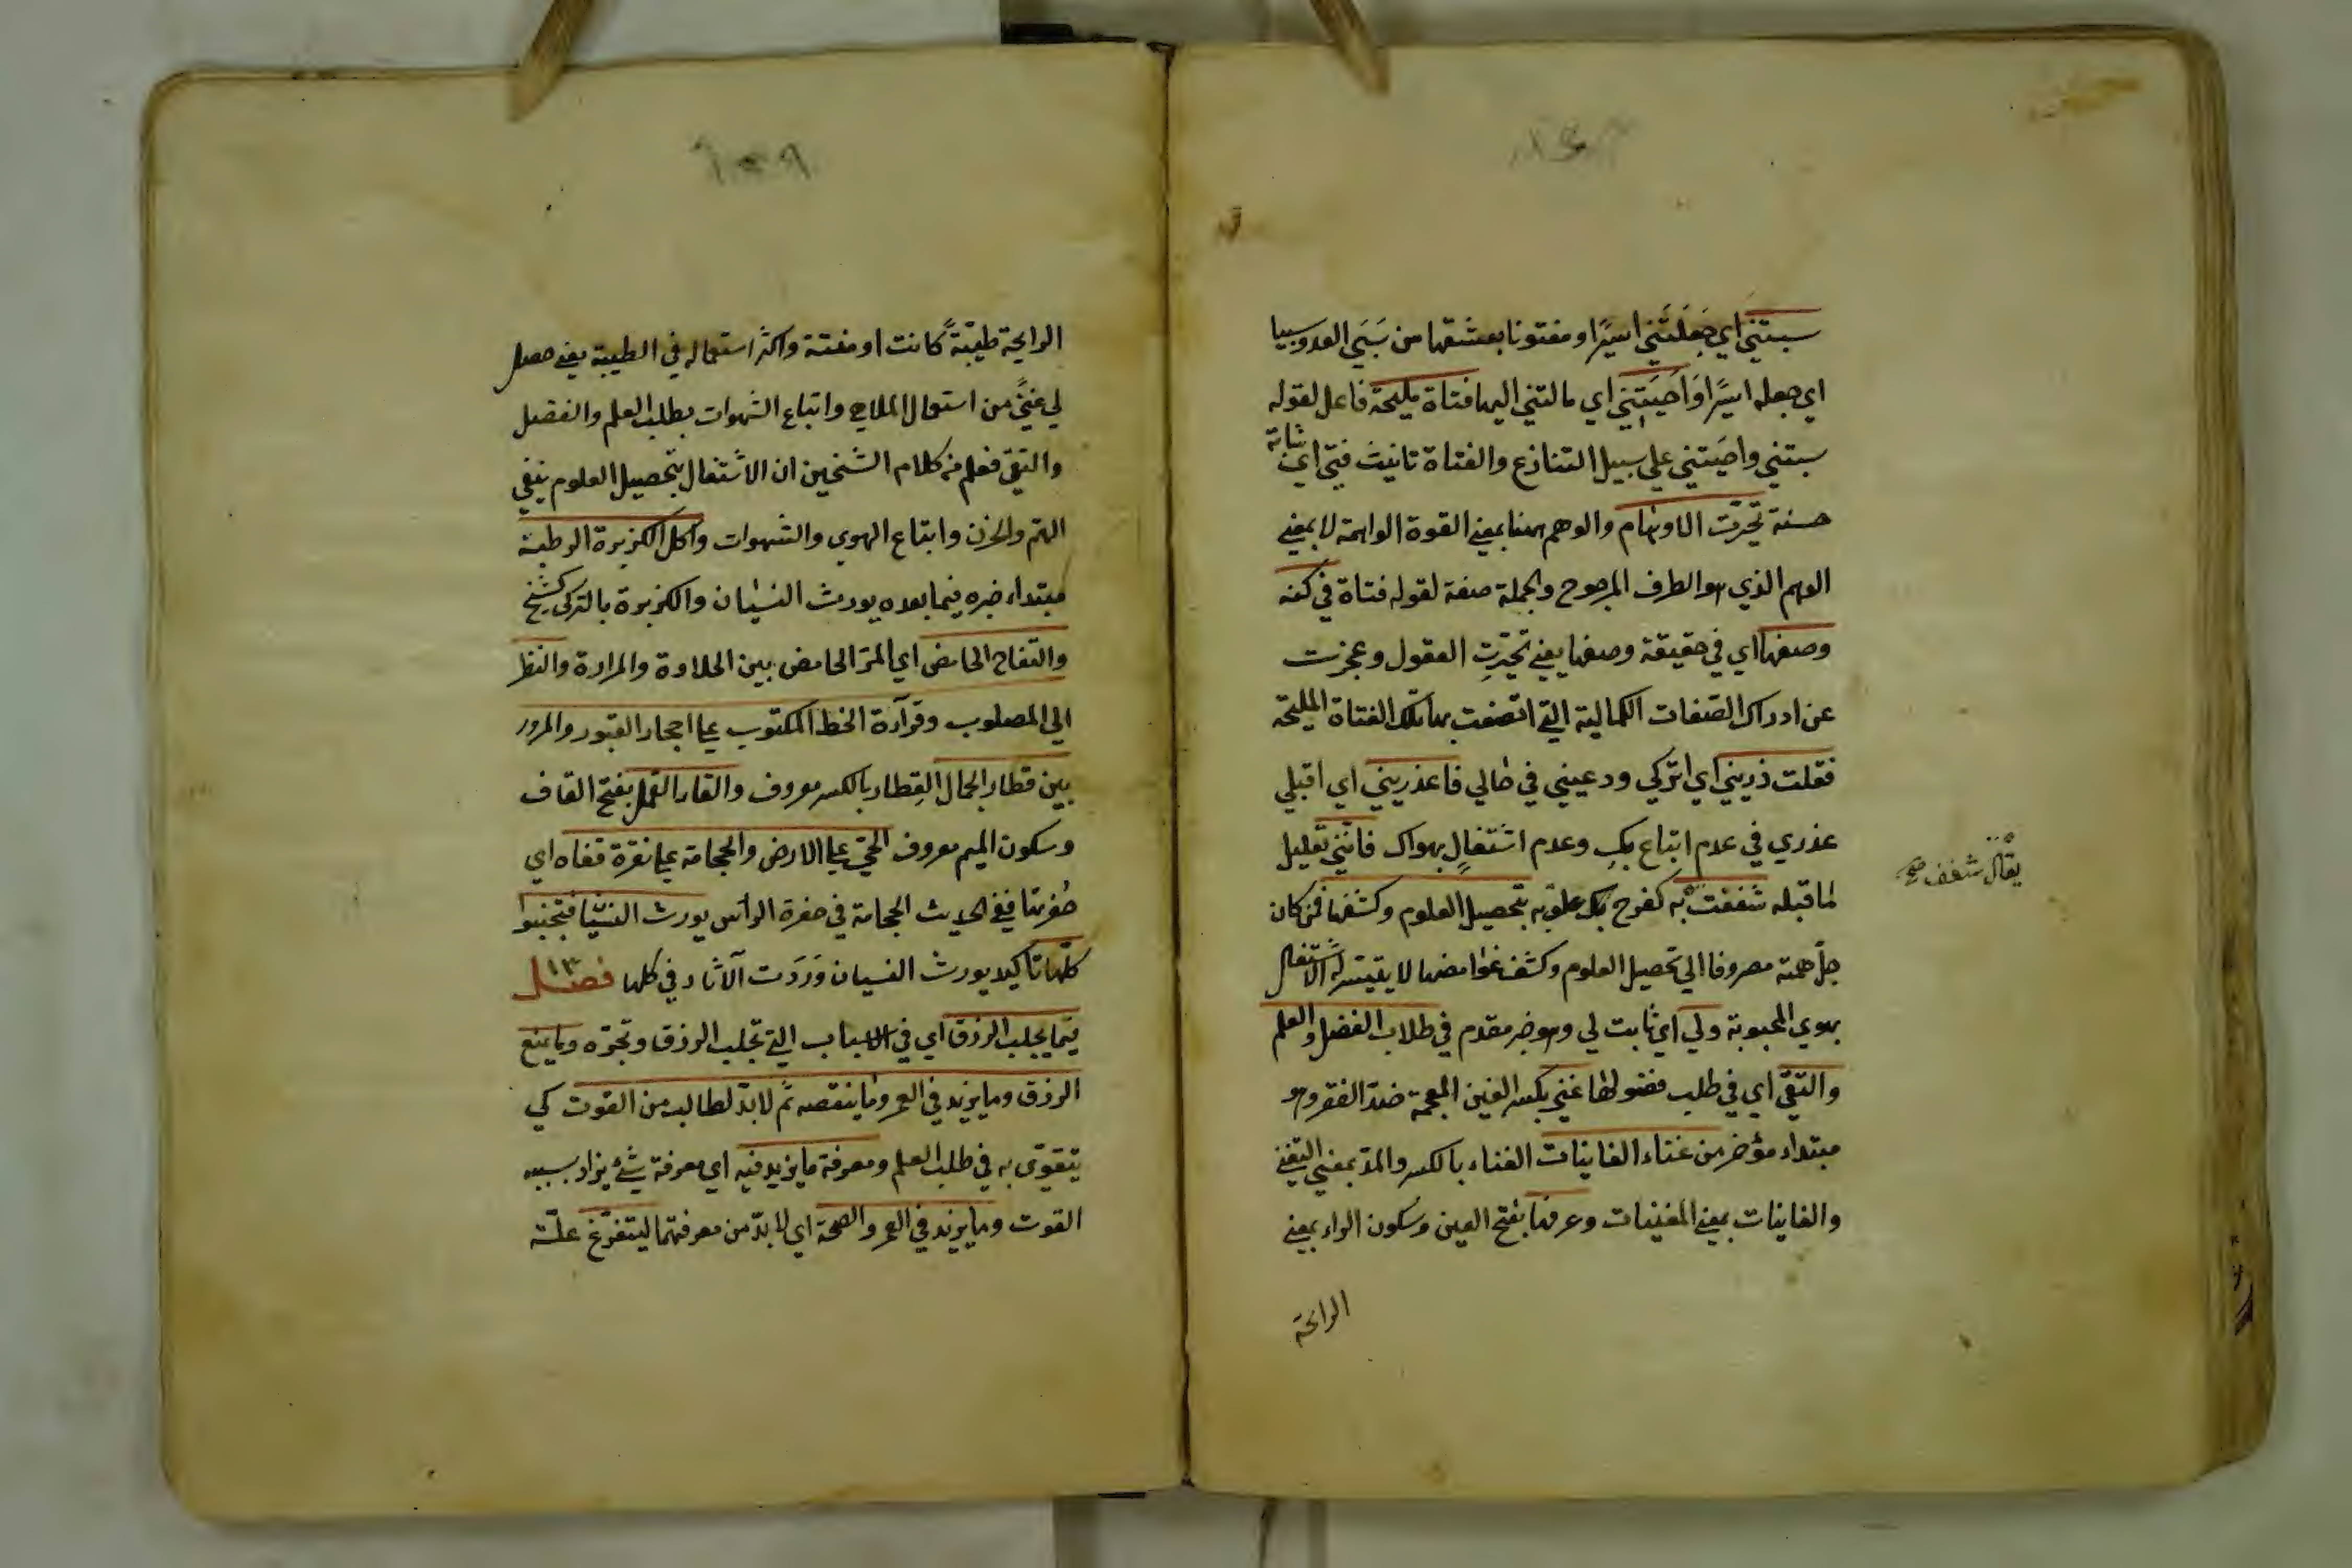 سبتني اي جَعَلَتْني اسيرًا ومفتونا بعشقها من سَبَيَ العدو سبيا
اي جعله اسيرًا وَاَصْبَتِني اي مالتني اليها فتاة مليحة فاعل لقوله
سبتني واصَبتني علي سبيل التنازع والفتاة تانيث فتي اي شابة
حسنة تحيّرت الاوهام والوهم ههنا بمعني القوة الواهمة لا بمعني
الوهم الذي هو الطرف المرجوح والجملة صفة لقوله فتاة في كنه
وصفها اي في حقيقة وصفها يعني تحيّرتِ العقول وعجزت
عن ادراك الصّفات الكمالية التي اتصفت بها تلك الفتاة المليحة
فقلت ذريني اي اتركي ودعيني في حالي فاعذريني اي اقبلي
عذري في عدم اتباع بكِ وعدم اشتغالٍ بهواك فانّني تعليل
لما قبله شغفت به كفرح بك علق به بتحصيل العلوم وكشفها فمن كان
جلّ همته مصروفا الي تحصيل العلوم وكشف غوامضها لا يتيسّر له الاشتغال
بهوي المحبوبة ولي اي ثابت لي وهو خبر مقدم في طلاب الفضل والعلم
والتقيّ اي في طلب هذه غني بكسر الغين المعجمة ضدّ الفقر وهو
مبتداء مؤخر من غناء الغانيات الغناء بالكسر والمدّ بمعني التغني
والغانيات بمعني المغنيات وعرفها بفتح العين وسكون الراء بمعني
الرائحة
يقال شغف صح
الرايحة طيّبةً كانت او منتنة واكثر استعماله في الطيبة يعني حصل
لي غنيً من استعمال الملاهي واتباع الشهوات بطلب العلم والفضل
والتقيّ فعلم من كلام الشيخين ان الاشتغال بتحصيل العلوم ينفي
الهمّ والحزن وابتاع الهوي والشهوات واكل الكزبرة الرطبة
مبتداء خبره فيما بعده يورث النسيان والكزبرة بالتركي كشنيج
والتفاح الحامض اي المزّ الحامض بين الحلاوة والمرارة والنظر
الي المصلوب وقرآءة الخط المكتوب علي احجار القبور والمرور
بين قطار الجمال القِطار بالكسر معروف والقاء القمل بفتح القاف
وسكون الميم معروف الحيّ علي الارض والحجامة علي نقرة قفاه اي
حُفرتها ففي الحديث الحجامة في حفرة الرأس يورث النسيّا فتجنبوا
كلّها تاكيد يورث النسيان وَرَدَت الآثار في كلها فصل ١٣
فيما يجلب الرزق اي في الاسباب التي تجلب الرزق وتجرّه وما يمنع
الرزق وما يزيد في العمر وما ينقصه ثم لا بدّ لطالب من القوت كي
يتقوّي به في طلب العلم ومعرفة ما يزيد فيه اي معرفة شئ يزاد بسببه
القوت وما يزيد في العمر والصحة اي لا بدّ من معرفتهما ليتفرّغ علّة